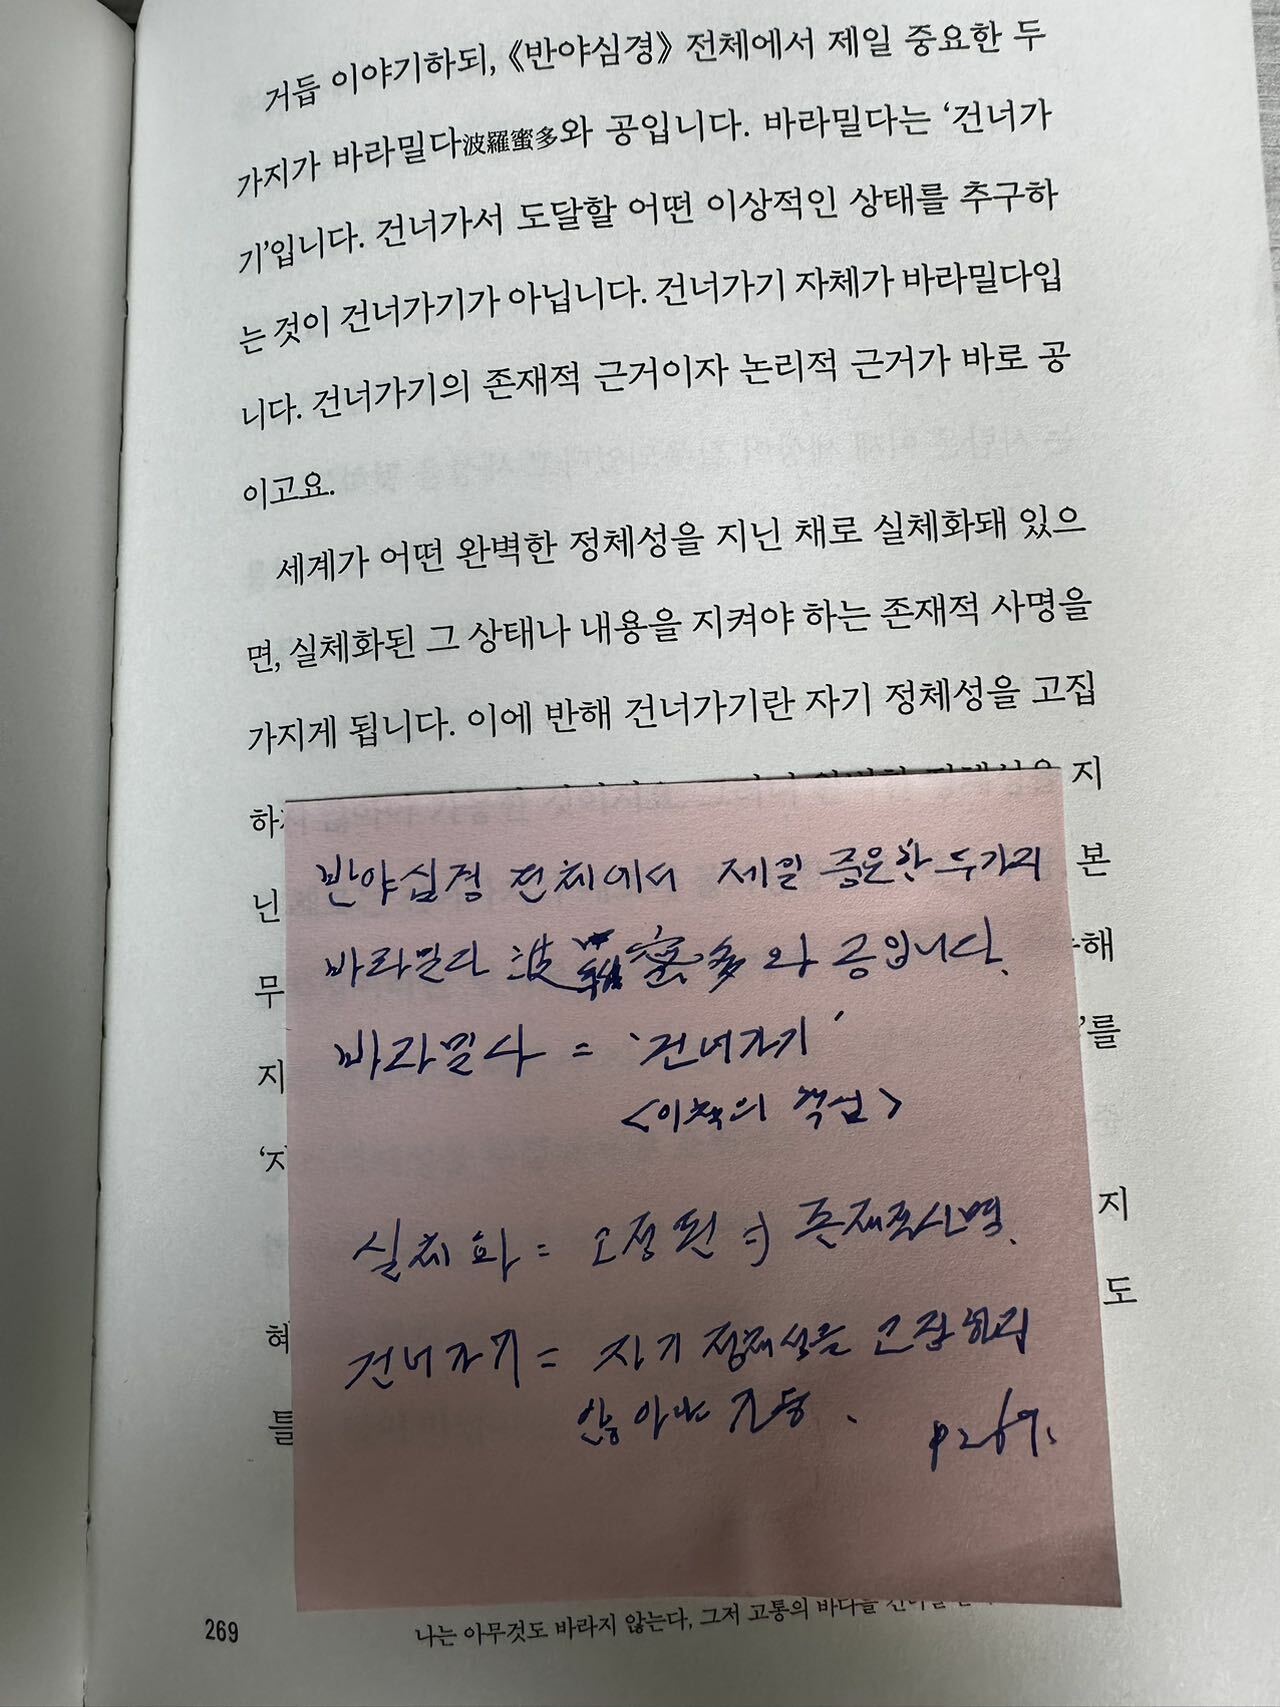 거듭 이야기하되, 《반야심경》 전체에서 제일 중요한 두
가지가 바라밀다波羅蜜多와 공입니다. 바라밀다는 ‘건너가
기’입니다. 건너가서 도달할 어떤 이상적인 상태를 추구하
는 것이 건너가기가 아닙니다. 건너가기 자체가 바라밀다입
니다. 건너가기의 존재적 근거이자 논리적 근거가 바로 공
이고요.
세계가 어떤 완벽한 정체성을 지닌 채로 실체화돼 있으
면, 실체화된 그 상태나 내용을 지켜야 하는 존재적 사명을
가지게 됩니다. 이에 반해 건너가기란 자기 정체성을 고집
지
닌 본
무 해
지 ’를
지
혜 도
틀
반야심경 전체에서 제일 중요한 두가지
바라밀다 波羅蜜多와 공입니다.
바라밀다 = ‘건너가기’
<이책의 핵심>
실체화 = 고정된 => 존재적사명.
건너가기 = 자기 정체성을 고집하지
않아야 가능.
p269.
269
나는 아무것도 바라지 않는다, 그저 고통의 바다를